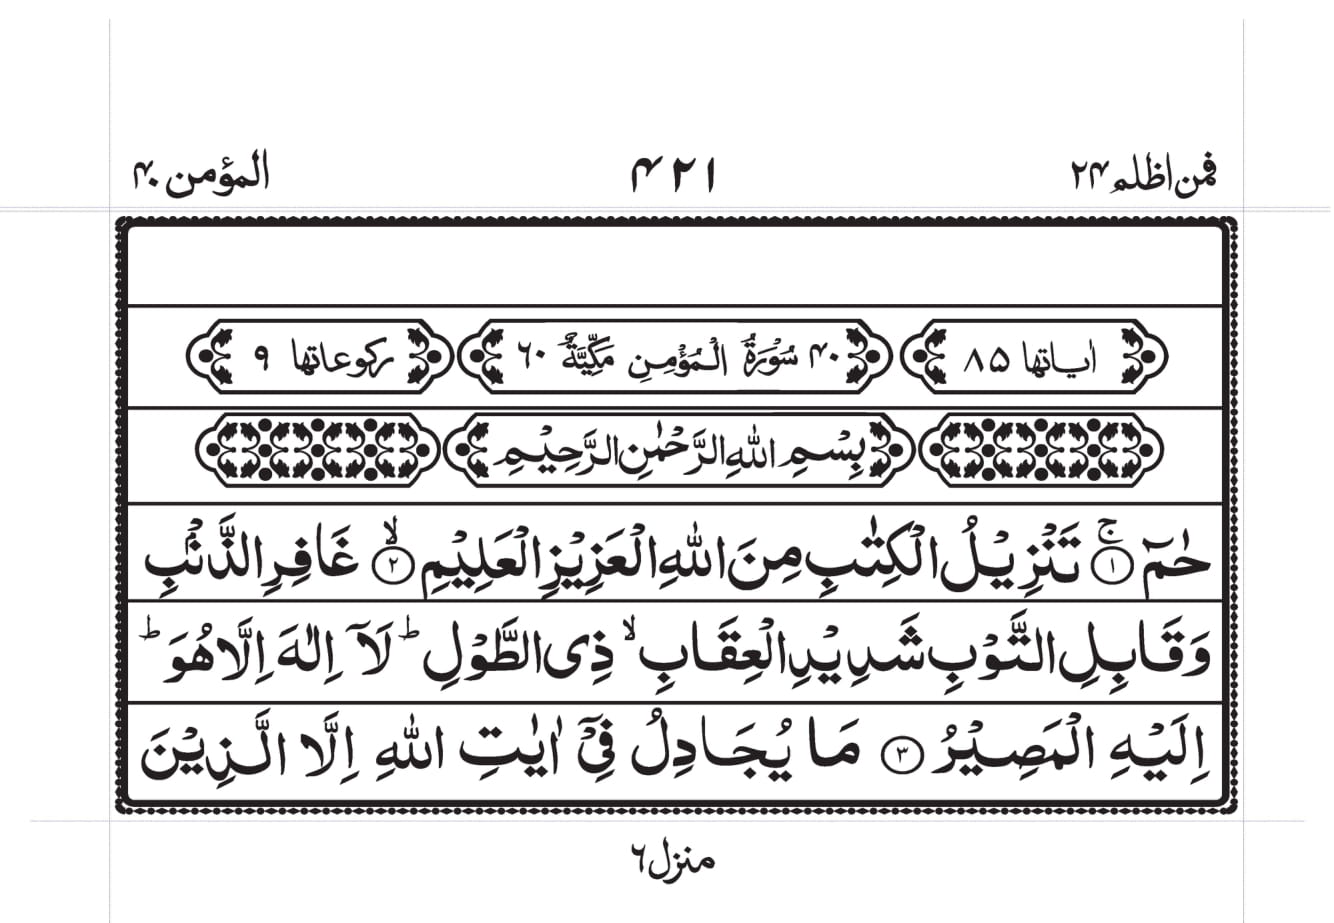 فمن اظلم ۲۴ ۴۲۱ المؤمن ۴۰
اٰیاتها ۸۵ ۴۰ سُوْرَةُ الْمُؤْمِنِ مَكِّيَّةٌ ۶۰ رکوعاتها ۹
بِسْمِ اللهِ الرَّحْمٰنِ الرَّحِيْمِ
حٰمٓ ۚ﴿۱﴾ تَنْزِيْلُ الْكِتٰبِ مِنَ اللهِ الْعَزِيْزِ الْعَلِيْمِ ۙ﴿۲﴾ غَافِرِ الذَّنْۢبِ
وَقَابِلِ التَّوْبِ شَدِيْدِ الْعِقَابِ ۙ ذِى الطَّوْلِ ؕ لَاۤ اِلٰهَ اِلَّا هُوَ ؕ
اِلَيْهِ الْمَصِيْرُ ﴿۳﴾ مَا يُجَادِلُ فِيْۤ اٰيٰتِ اللهِ اِلَّا الَّذِيْنَ
منزل ۶